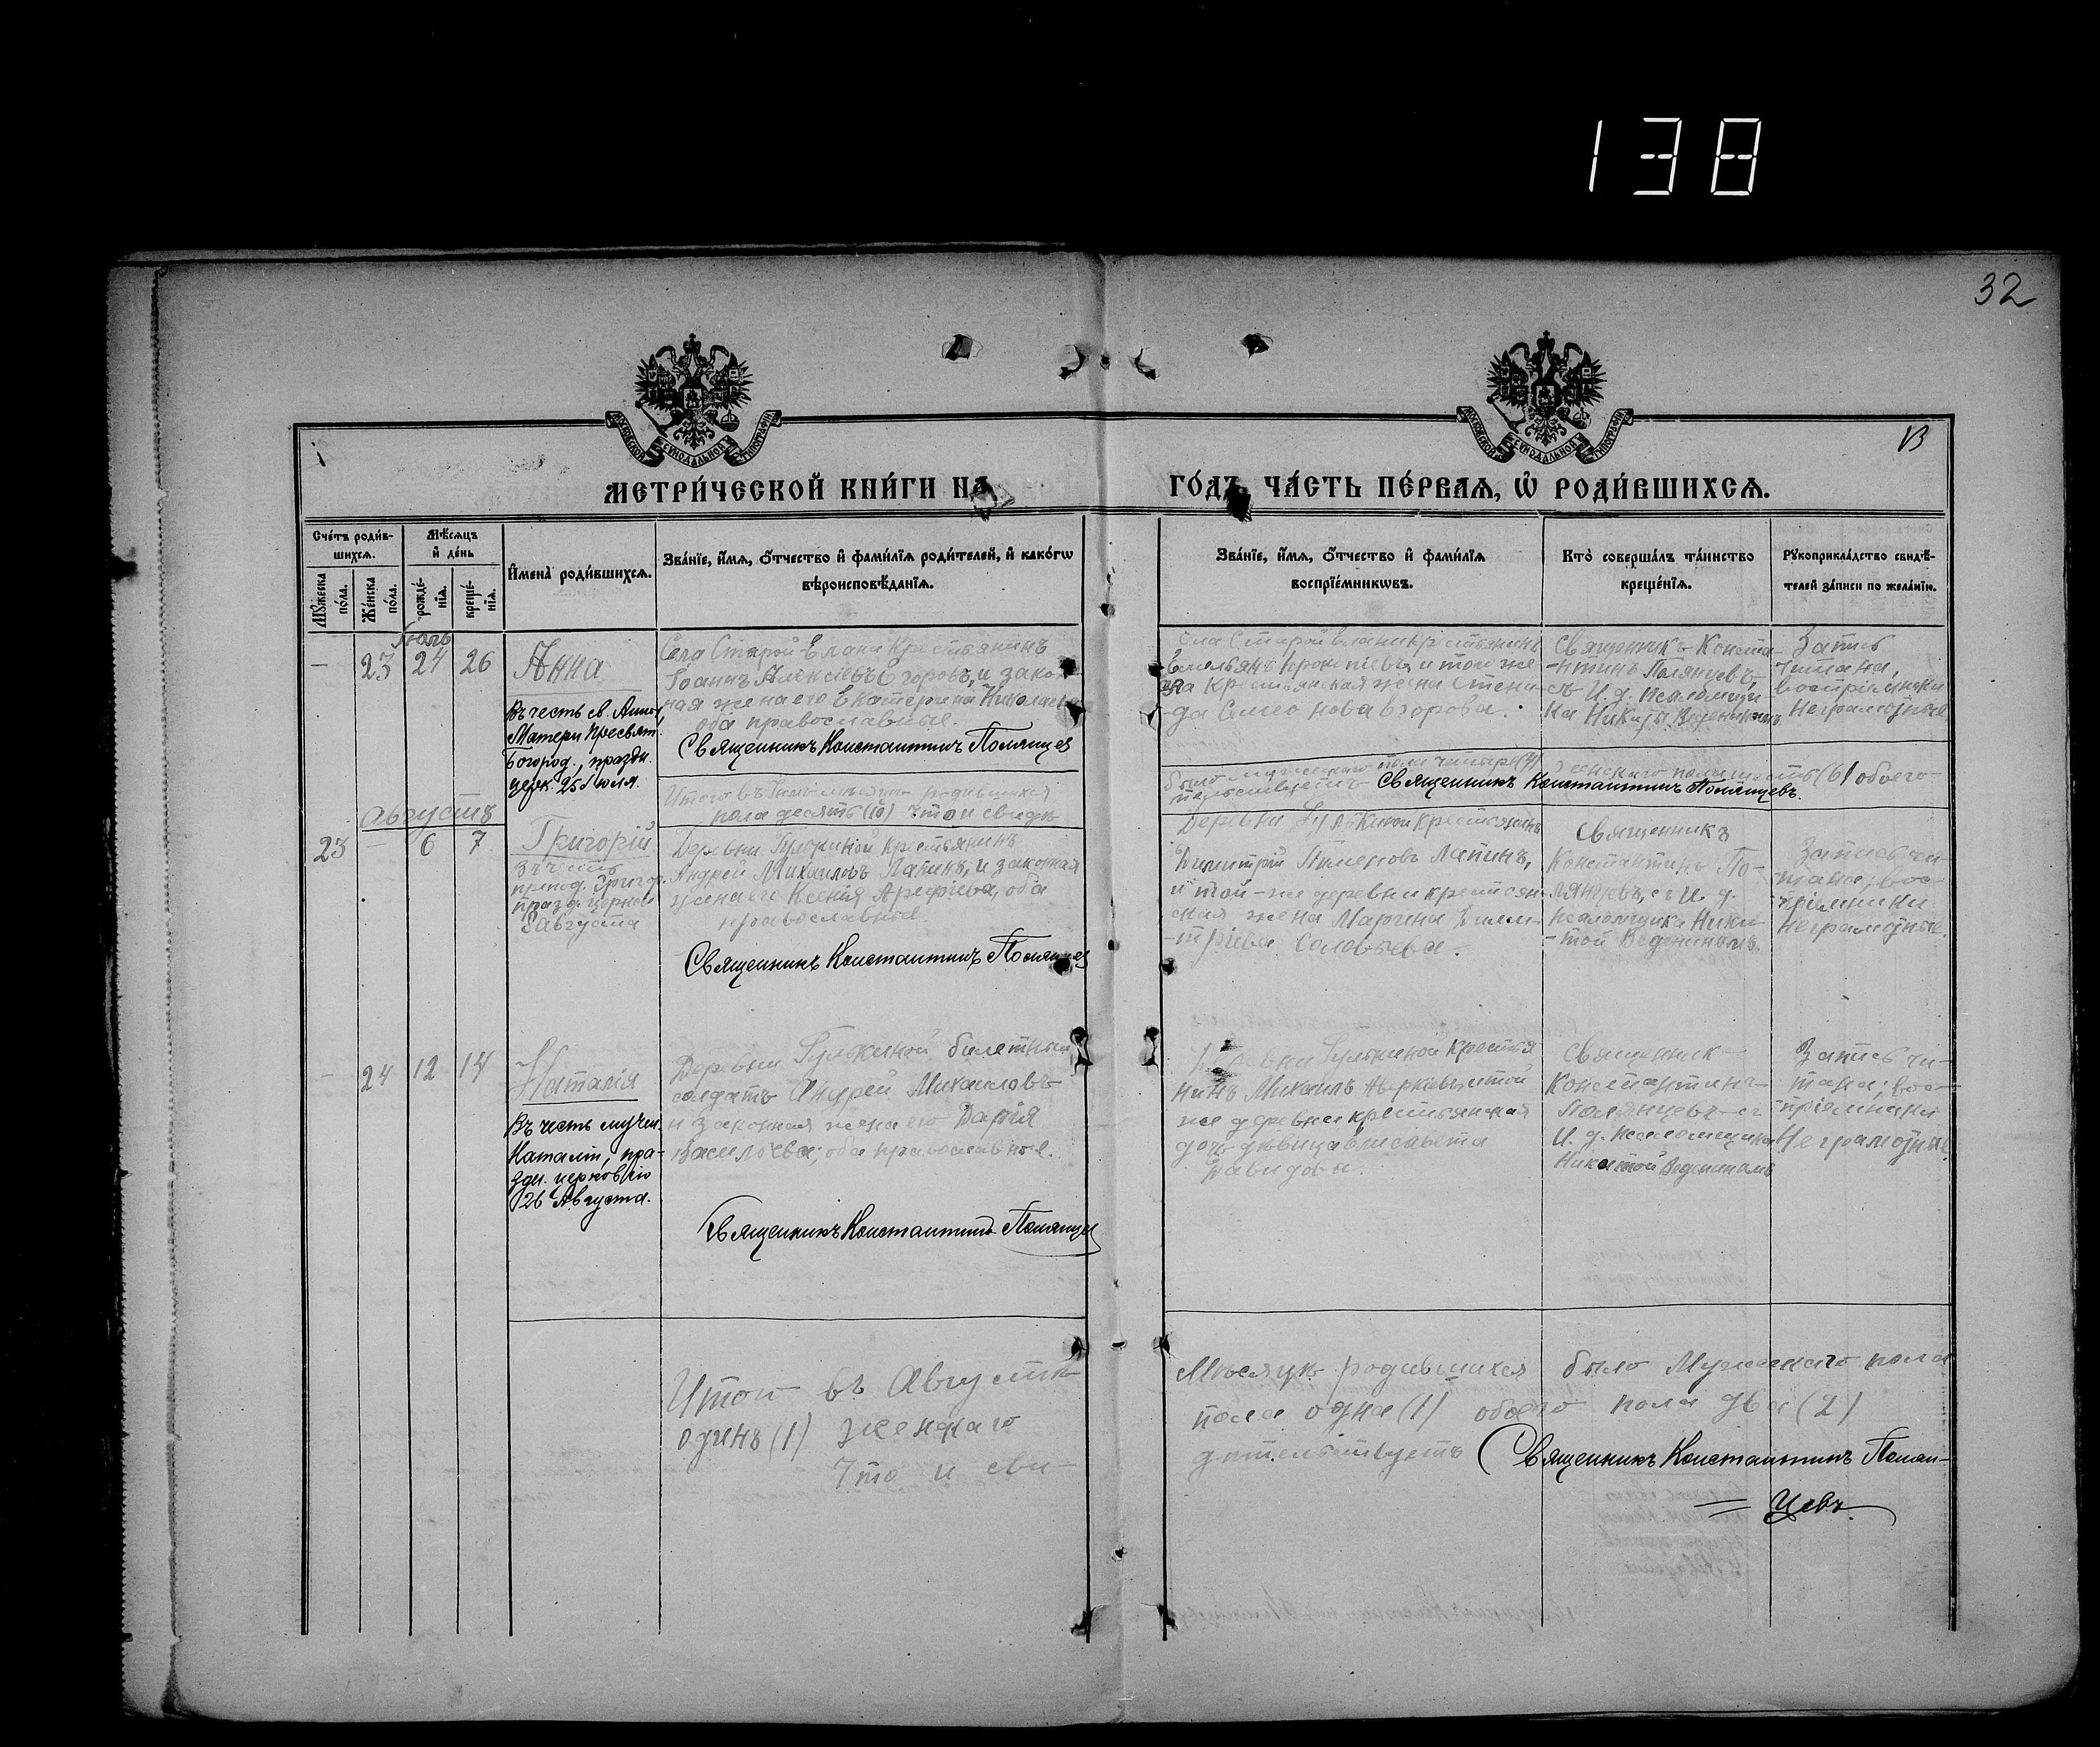 138
32
МОСКОВСКОЙ СѴНОДАЛЬНОЙ ТИПОГРАФІИ
МОСКОВСКОЙ СѴНОДАЛЬНОЙ ТИПОГРАФІИ
МЕТРИ́ЧЕСКОЙ КНИ́ГИ НА
ГО́ДЪ ЧА́СТЬ ПЕ́РВАѦ, Ѡ҆ РОДИ́ВШИХСѦ.
Сче́тъ роди́в-
шихсѧ.
Мꙋ́жеска по́ла.
Же́нска по́ла.
Мѣ́сѧцъ
и҆ де́нь
рожде́-
нїѧ.
креще́-
нїѧ.
И҆мена̀ роди́вшихсѧ.
Зва́нїе, и҆́мѧ, ѻ҆́тчество и҆ фами́лїѧ роди́телей, и҆ како́гѡ
вѣроисповѣ́данїѧ.
Зва́нїе, и҆́мѧ, ѻ҆́тчество и҆ фами́лїѧ
воспрїе́мникѡвъ.
Кто̀ соверша́лъ та́инство
креще́нїѧ.
Рꙋкоприкла́дство свидѣ́-
телей за́писи по жела́нїю.
Іюль
— 23 24 26
Анна
Въ честь св. Анны,
Матери Пресвят.
Богород., праздн.
церк. 25 Іюля.
Села Старой Елани Крестьянинъ
Іоаннъ Алексѣевъ Егоровъ, и закон-
ная жена его Екатерина Николаева
оба православные.
Священникъ Константинъ Полянцев
Села Старой Елани крестьянинъ
Емельянъ Прокопіевъ, и того же
села Крестьянская жена Степани-
да Семенова Егорова.
Священникъ Конста-
-нтинъ Полянцевъ,
съ И. д. псаломщи
ка Никиты Веденинымъ
Запись
читана,
воспріемники
неграмотные
Итого въ Іюлѣ мѣсяцѣ родившихся
было мужескаго пола четыре (4) женскаго пола шесть (6) обоего
пола десять (10) Что и свидѣ
тельствуетъ Священникъ Константинъ Полянцевъ.
Августъ
23 — 6 7
Григорій
В честь
препод. Григор.
празд. церков
8 августа
Деревни Гулькиной крестьянинъ
Андрей Михаиловъ Лапинъ, и законная
жена его Ксенія Арефіева, оба
православные.
Священникъ Константинъ Полянцев
Деревни Гулькиной крестьянинъ
Димитрій Пименовъ Лапинъ,
и той-же деревни крестьян-
ская жена Марина Дими-
-тріева Соловьева.
Священникъ
Константинъ По-
лянцевъ, съ И. д.
псаломщика Ники-
-той Веденинымъ.
Запись чи-
тана; вос-
пріемники
неграмотные.
— 24 12 14
Наталія
Въ честь мучен.
Наталіи, пра-
здн. церковію
26 Августа.
Деревни Гулькиной билетный
солдатъ Андрей Михаиловъ
и законная жена его Дарія
Васильева; оба православные.
Священникъ Константинъ Полянцев
Деревни Гулькиной Крестья
нинъ Михаилъ Аверкіевъ, и той
же деревни крестьянская
дочь дѣвица Елисавета
Давидова.
Священник
Константинъ
Полянцевъ съ
И. д. псаломщика
Никитой Веденинымъ
Запись чи-
тана; вос-
пріемники
Неграмотные.
Итого въ Августѣ
Мѣсяцѣ родившихся было Мужескаго пола
одинъ (1) женскаго
пола одна (1) обоего пола два (2)
Что и сви-
дѣтельствуетъ Священникъ Константинъ Полян-
= цевъ.